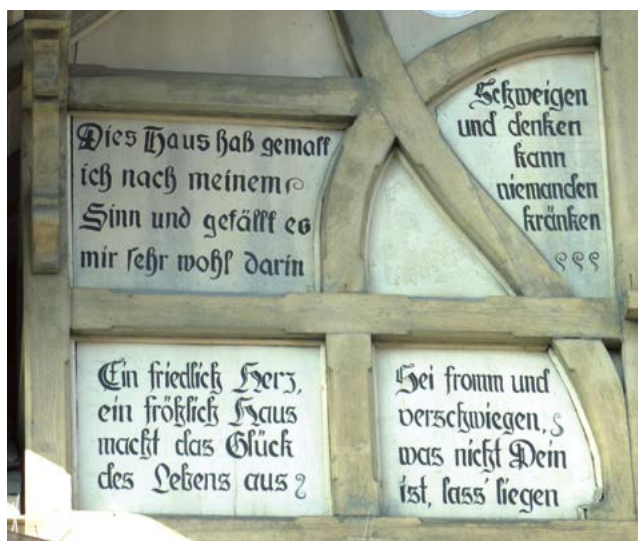 Dies Haus hab gemalt
ich nach meinem
Sinn und gefällt es
mir sehr wohl darin
Schweigen
und denken
kann
niemanden
kränken
Ein friedlich Herz,
ein fröhlich Haus
macht das Glück
des Lebens aus
Sei fromm und
verschwiegen,
was nicht Dein
ist, lass' liegen